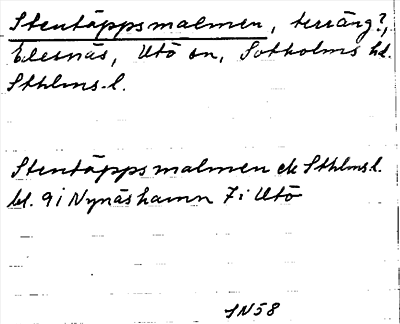 Stentäppsmalmen, terräng?,
Edesnäs, Utö sn, Sotholms hd.
Sthlms. l.
Stentäppsmalmen ek Sthlms l.
bl. 9 i Nynäshamn 7 i Utö
SN58